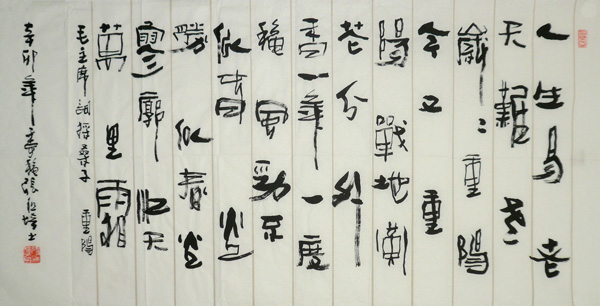 人生易老
天難老
歲々重陽
今又重
陽戰地黃
花分外
香一年一度
穐風勁不
似春光
勝似春光
寥廓江天
萬里霜
毛主席詞採桑子 重陽
辛卯年 張 書